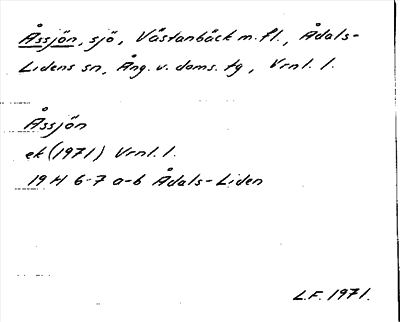 Åssjön, sjö, Västanbäck m.fl., Ådals-
Lidens sn, Ång. v. doms. tg, Vrnl. l.
Åssjön
ek (1971) Vrnl. l.
19 H 6-7 a-b Ådals-Liden
L.F. 1971.